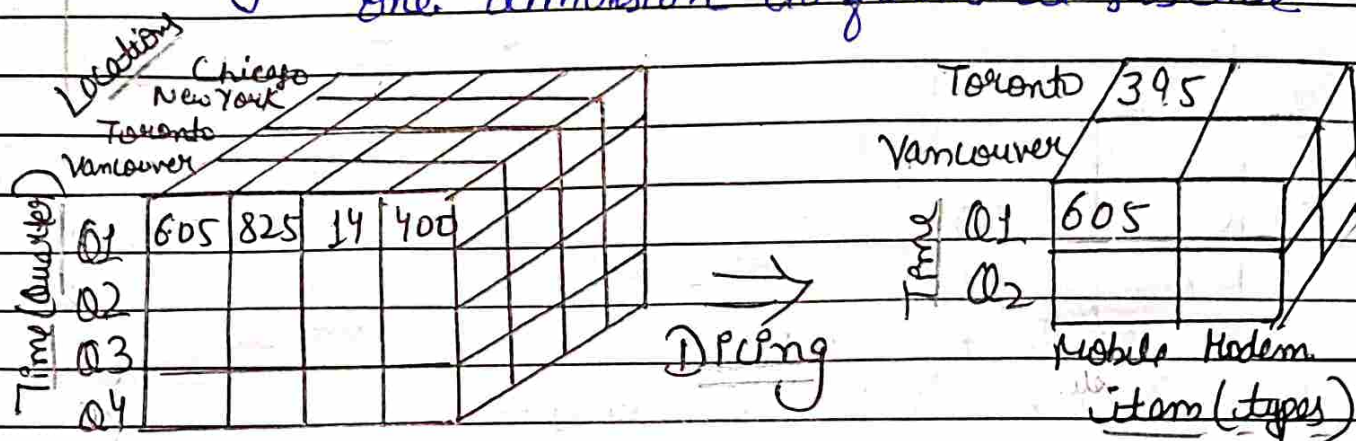 one dimension
Locations
Chicago
New York
Toronto
Vancouver
Time (Quarter)
Q1 605 825 14 400
Q2
Q3
Q4
Dicing
Toronto 395
Vancouver
Time
Q1 605
Q2
Mobile Modem
item (types)